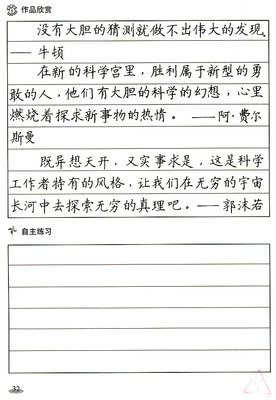 作品欣赏
没有大胆的猜测就做不出伟大的发现。
—— 牛顿
在新的科学宫里，胜利属于新型的勇
敢的人，他们有大胆的科学的幻想，心里
燃烧着探求新事物的热情。 ——阿·费尔
斯曼
既异想天开，又实事求是，这是科学
工作者特有的风格，让我们在无穷的宇宙
长河中去探索无穷的真理吧。——郭沫若
自主练习
32